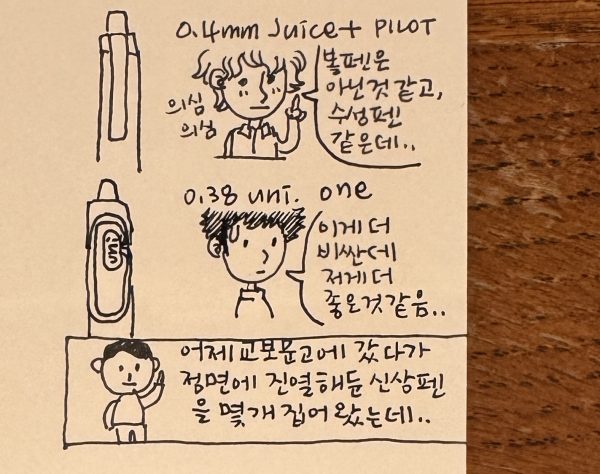 0.4mm Juice+ PILOT
볼펜은
아닌것 같고,
수성펜
같은데..
의심
의심
0.38 uni. one
uni
이게 더
비싼데
저게 더
좋은것 같음..
어제 교보문고에 갔다가
정면에 진열해둔 신상펜
을 몇개 집어 왔는데..